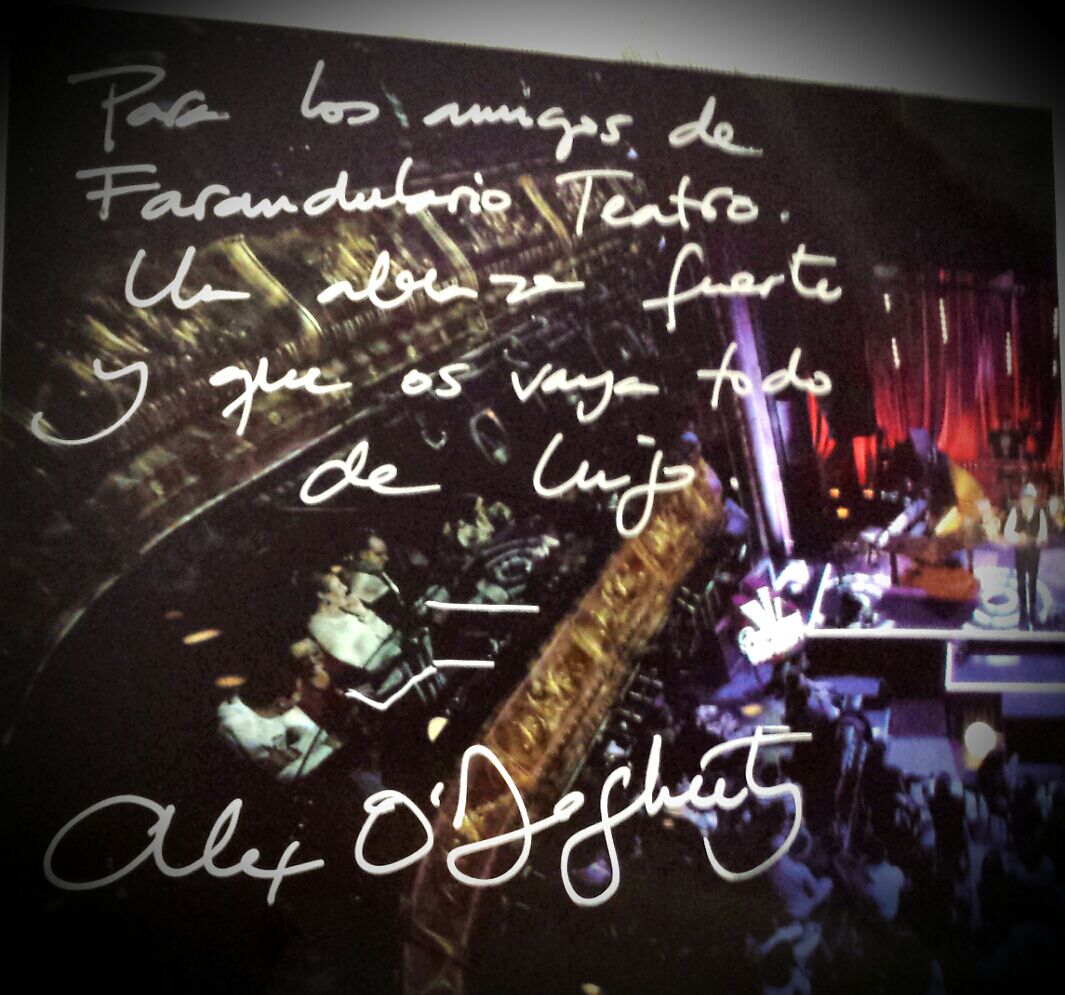 Para los amigos de
Farandulario Teatro.
Un abrazo fuerte
y que os vaya todo
de lujo.
Alex O'Dogherty